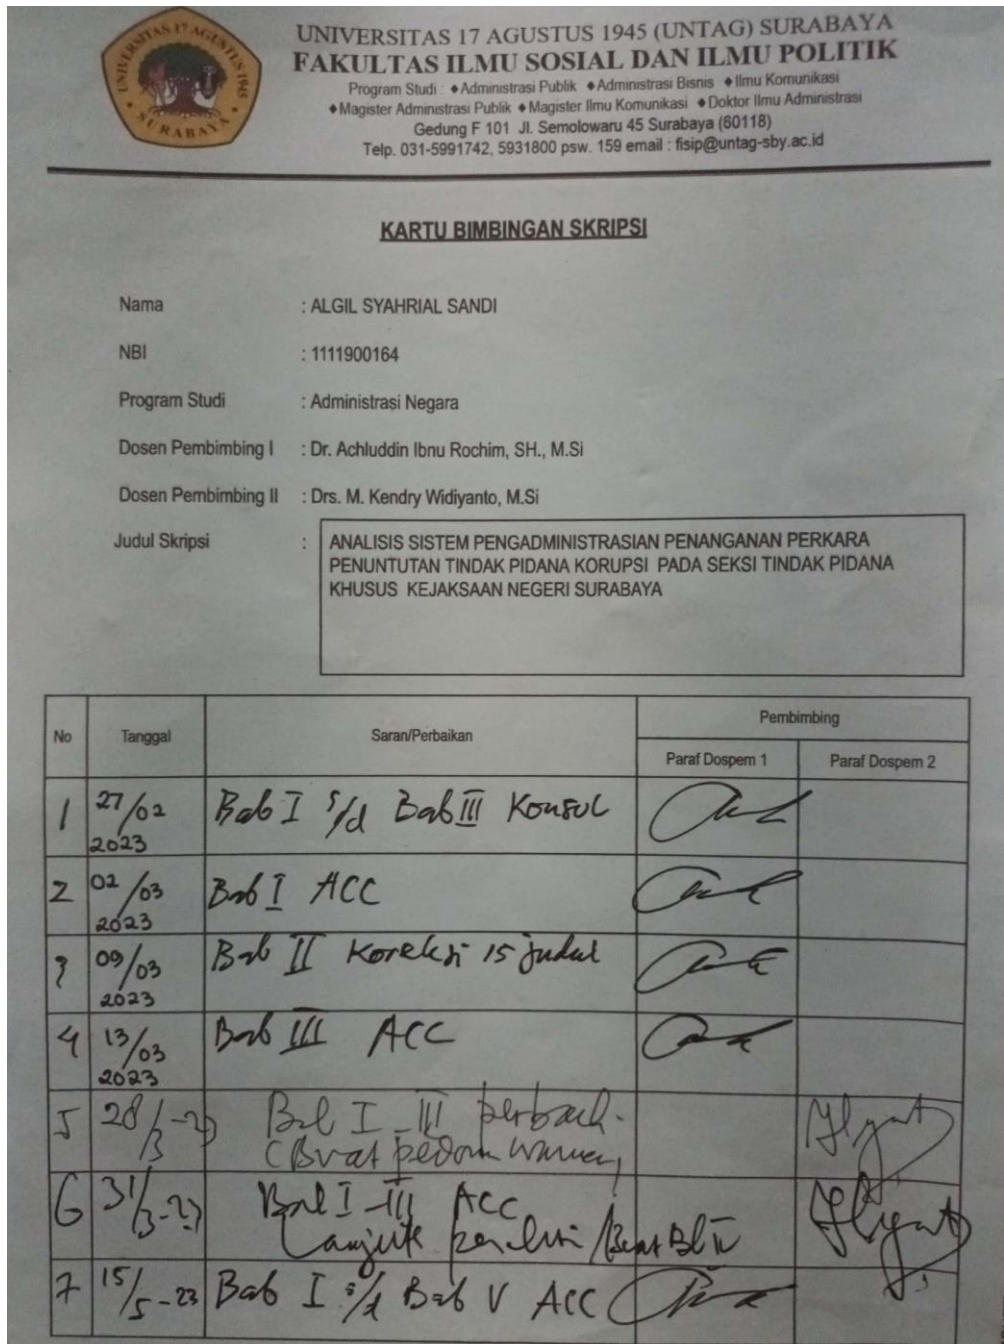 UNIVERSITAS 17 AGUSTUS 1945
SURABAYA
UNIVERSITAS 17 AGUSTUS 1945 (UNTAG) SURABAYA
FAKULTAS ILMU SOSIAL DAN ILMU POLITIK
Program Studi : ♦Administrasi Publik ♦Administrasi Bisnis ♦Ilmu Komunikasi
♦Magister Administrasi Publik ♦Magister Ilmu Komunikasi ♦Doktor Ilmu Administrasi
Gedung F 101 Jl. Semolowaru 45 Surabaya (60118)
Telp. 031-5991742, 5931800 psw. 159 email : fisip@untag-sby.ac.id
KARTU BIMBINGAN SKRIPSI
Nama : ALGIL SYAHRIAL SANDI
NBI : 1111900164
Program Studi : Administrasi Negara
Dosen Pembimbing I : Dr. Achluddin Ibnu Rochim, SH., M.Si
Dosen Pembimbing II : Drs. M. Kendry Widiyanto, M.Si
Judul Skripsi : ANALISIS SISTEM PENGADMINISTRASIAN PENANGANAN PERKARA
PENUNTUTAN TINDAK PIDANA KORUPSI PADA SEKSI TINDAK PIDANA
KHUSUS KEJAKSAAN NEGERI SURABAYA
No Tanggal Saran/Perbaikan Pembimbing
Paraf Dospem 1 Paraf Dospem 2
1 27/02 2023 Bab I s/d Bab III Konsul
2 02/03 2023 Bab I ACC
3 09/03 2023 Bab II Koreksi 15 judul
4 13/03 2023 Bab III ACC
5 28/3-23 Bab I - III
(Buat
6 31/3-23 Bab I-III ACC
7 15/5-23 Bab I s/d Bab V ACC